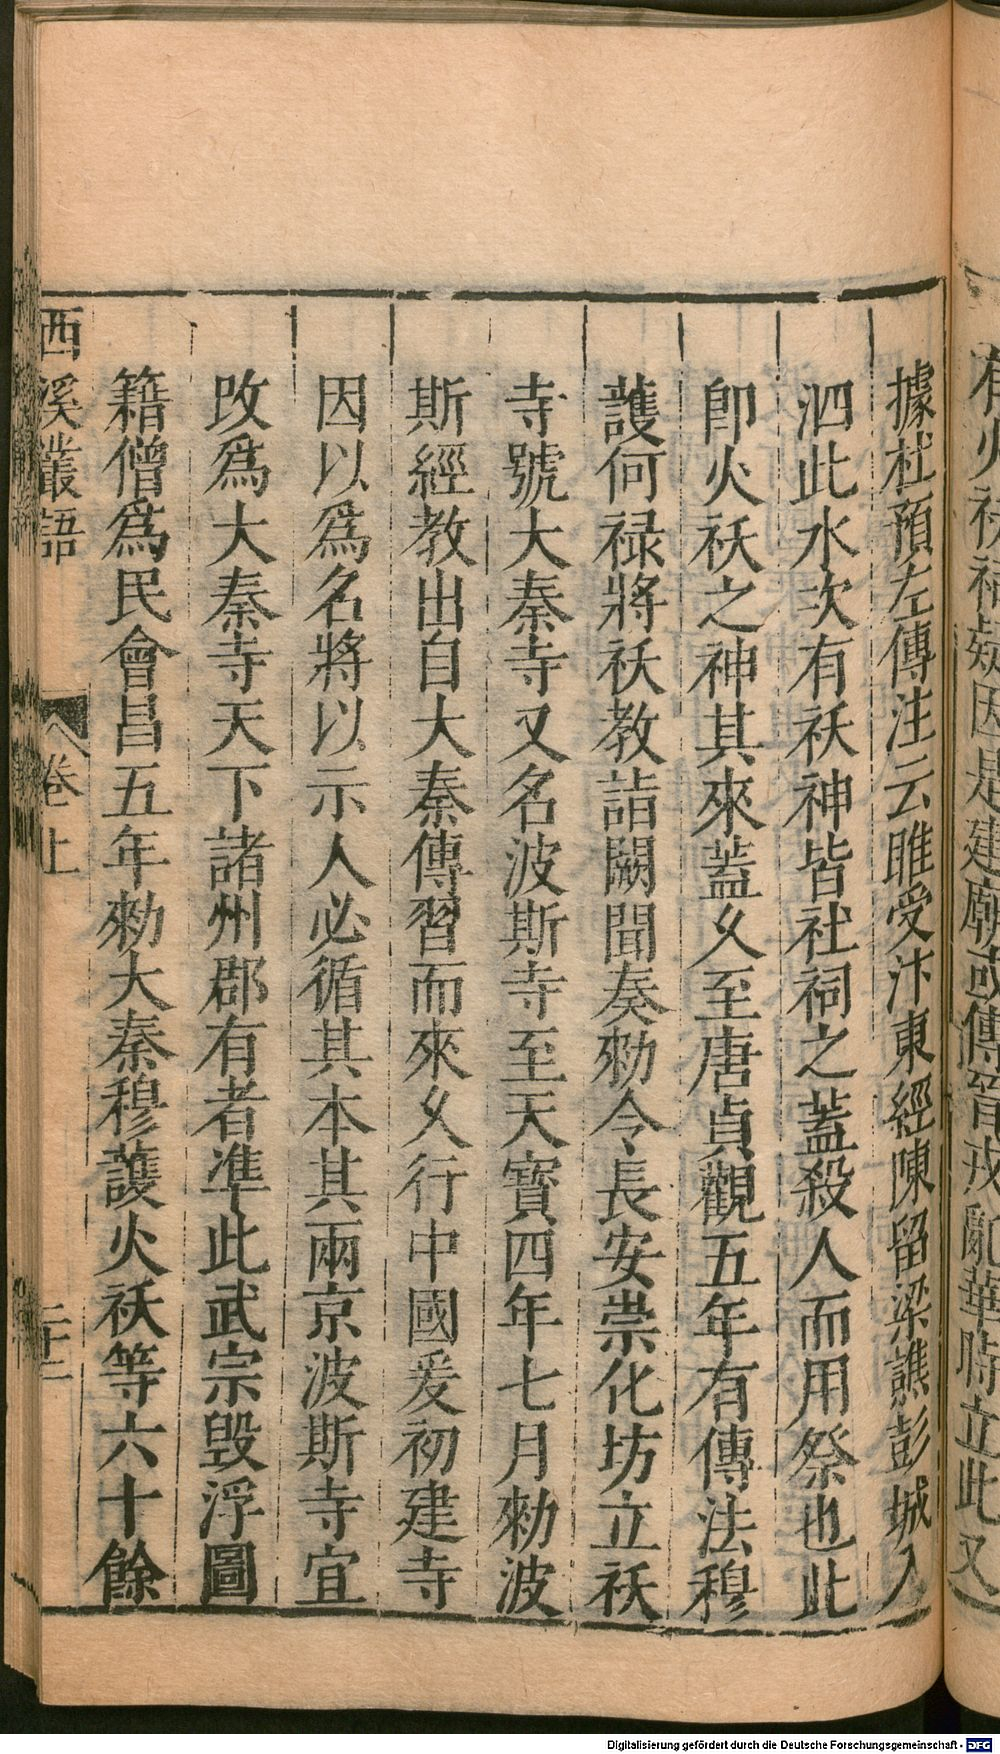 有火祆祠疑因是建廟或傳晉戎亂華時立此又
據杜預左傳注云睢受汴東經陳留梁譙彭城入
泗此水次有祆神皆社祠之蓋殺人而用祭也此
即火祆之神其來蓋乆至唐貞觀五年有傳法穆
護何禄將祆教詣闕聞奏勑令長安崇化坊立祆
寺號大秦寺又名波斯寺至天寶四年七月勑波
斯經教出自大秦傳習而來乆行中國爰初建寺
因以爲名將以示人必循其本其兩京波斯寺宜
改爲大秦寺天下諸州郡有者準此武宗毀浮圖
籍僧爲民會昌五年勑大秦穆護火祆等六十餘
西溪叢語
卷上
Digitalisierung gefördert durch die Deutsche Forschungsgemeinschaft - DFG